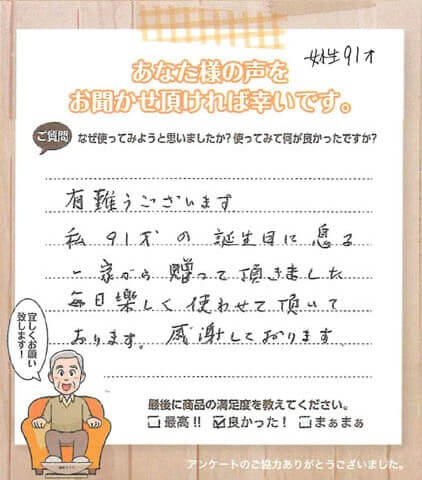 女性91才
あなた様の声を
お聞かせ頂ければ幸いです。
ご質問 なぜ使ってみようと思いましたか?使ってみて何が良かったですか?
有難うございます
私91才の誕生日に息る
一家から贈って頂きました
毎日楽しく使わせて頂いて
おります。感謝しております
宜しくお願い
致します!
最後に商品の満足度を教えてください。
□最高!! ☑良かった! □まぁまぁ
アンケートのご協力ありがとうございました。